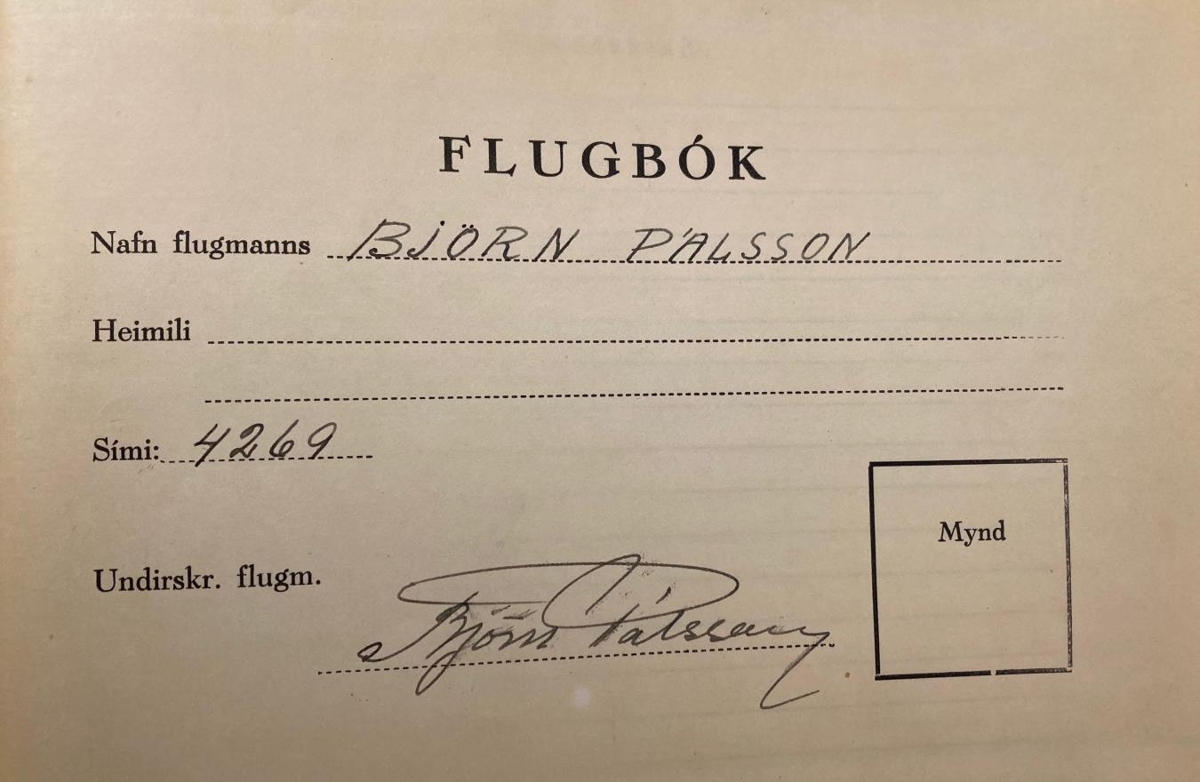 FLUGBÓK
Nafn flugmanns BJÖRN PÁLSSON
Heimili
Sími: 4269
Mynd
Undirskr. flugm.
Björn Pálsson